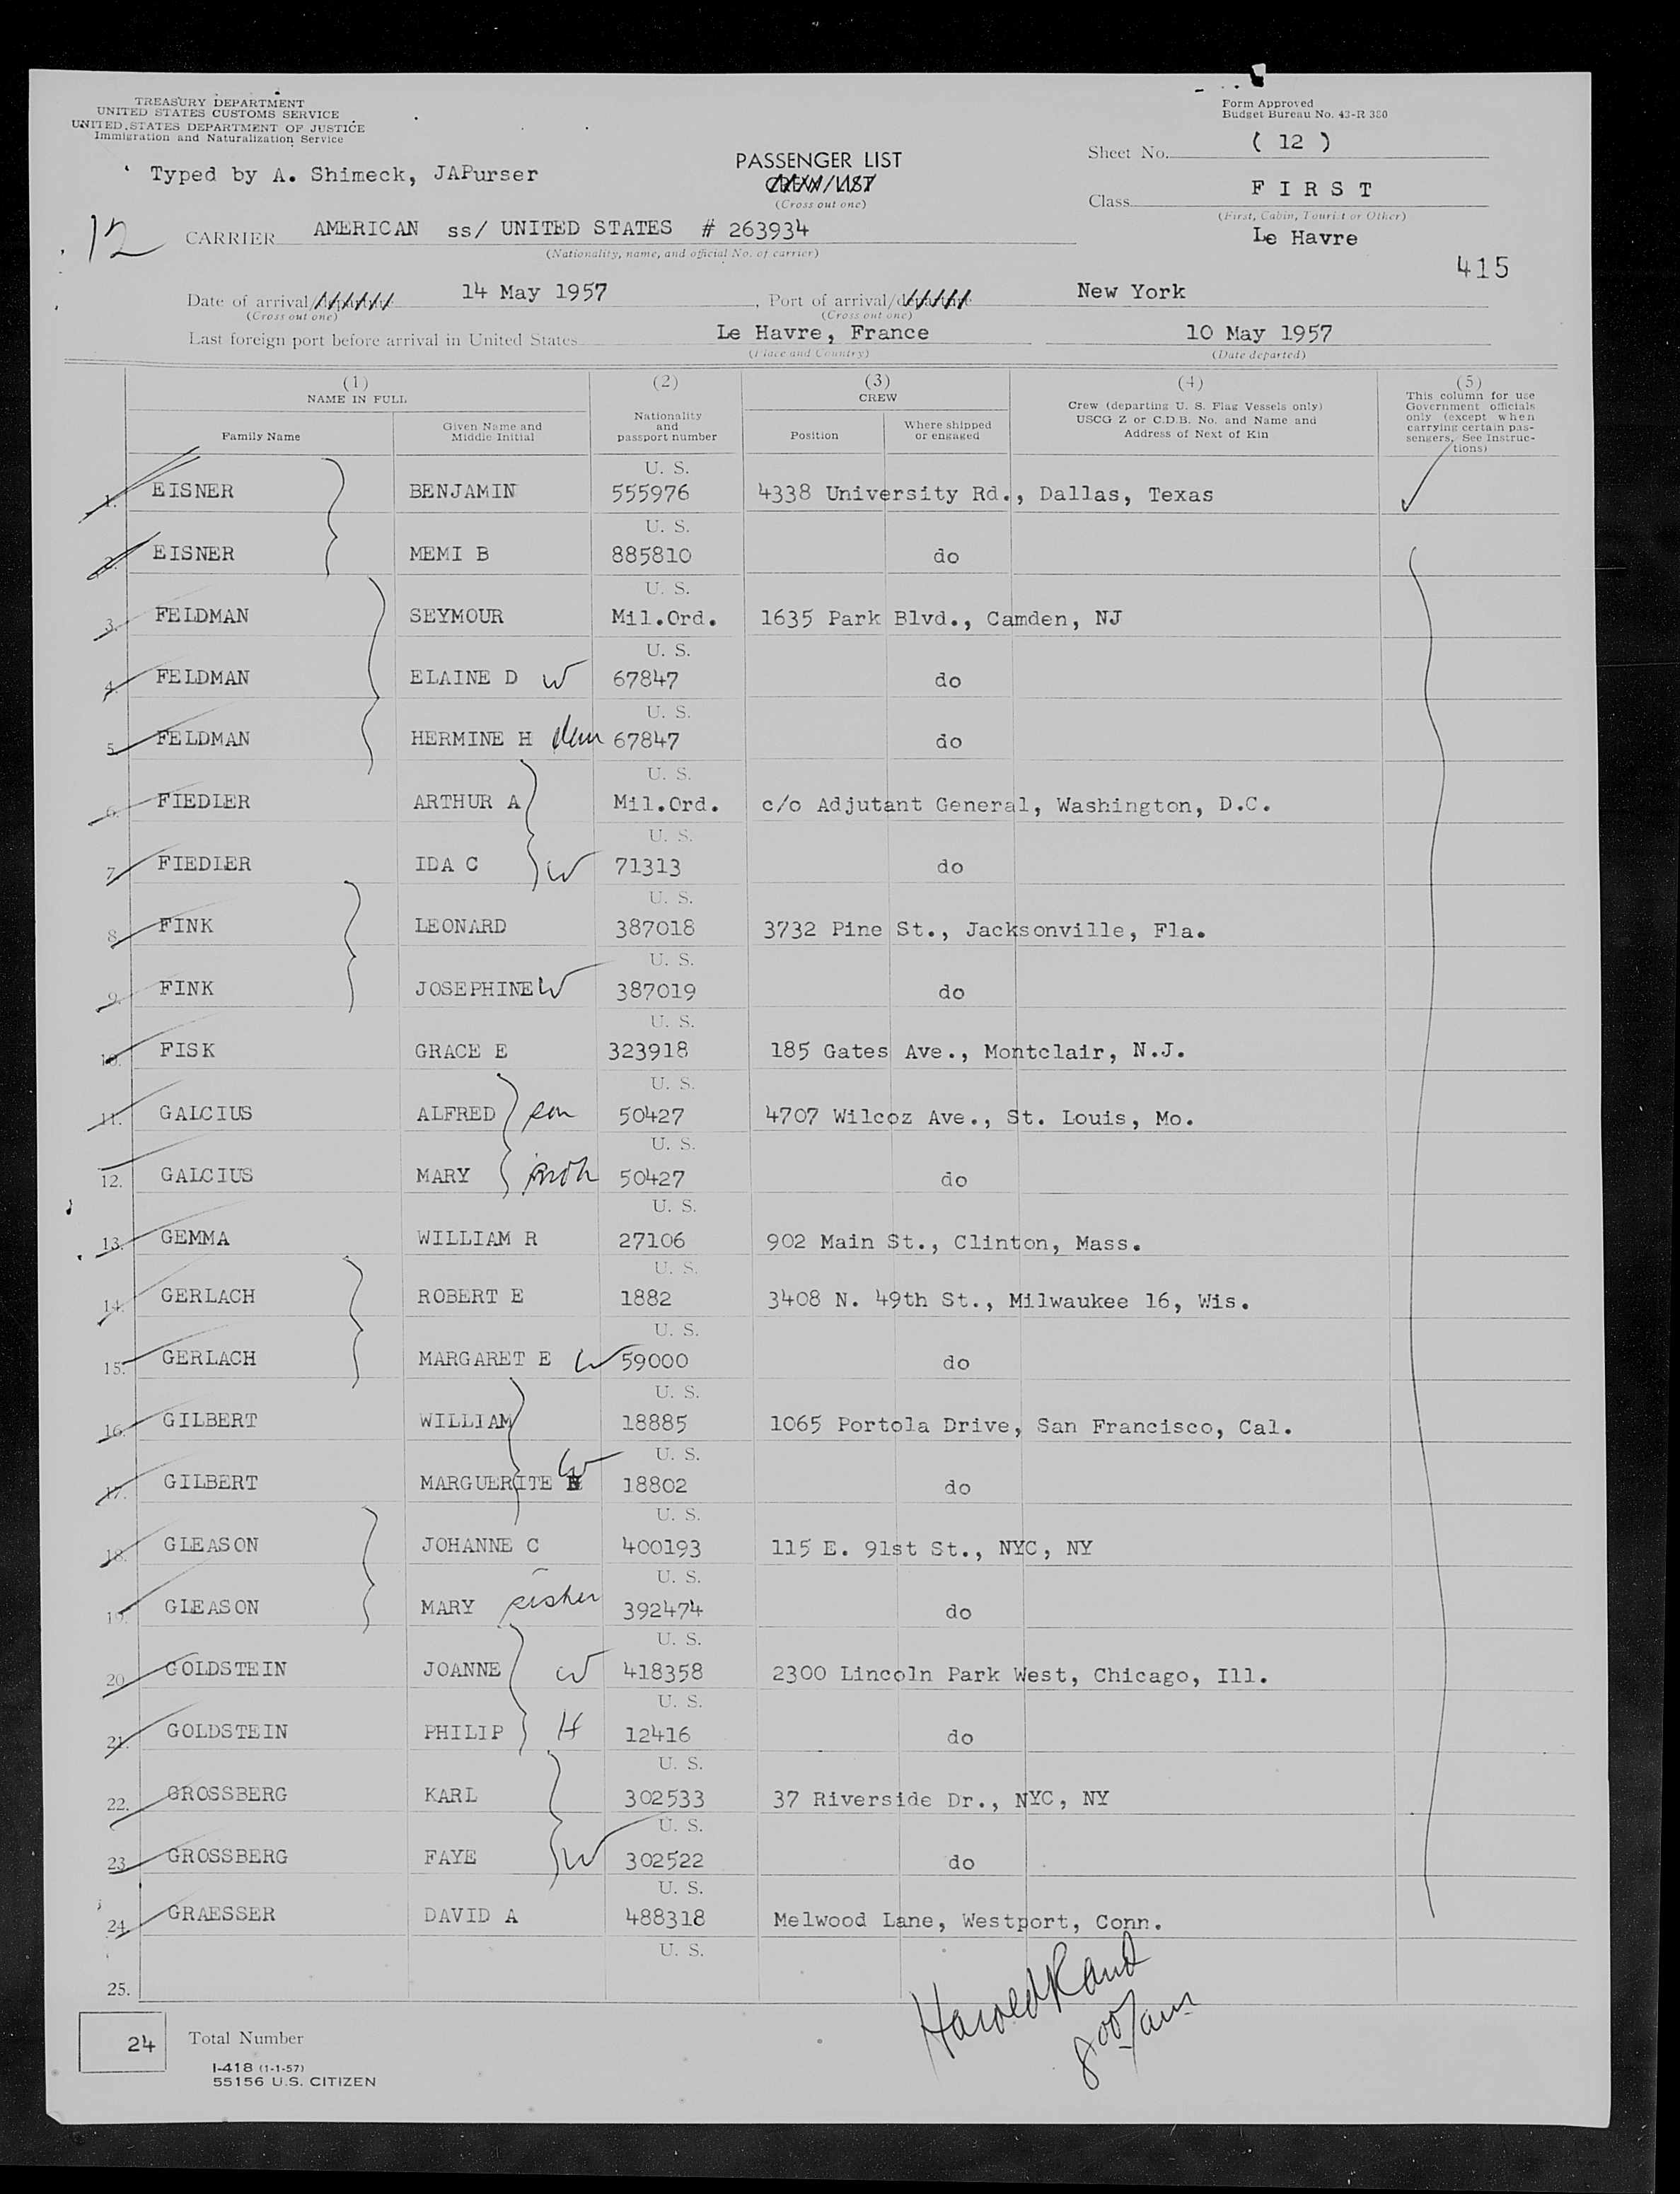 TREASURY DEPARTMENT
UNITED STATES CUSTOMS SERVICE
UNITED STATES DEPARTMENT OF JUSTICE
Immigration and Naturalization Service
Form Approved
Budget Bureau No. 43-R 380
Typed by A. Shimeck, JAPurser
PASSENGER LIST
CREW LIST
(Cross out one)
Sheet No. ( 12 )
Class F I R S T
(First, Cabin, Tourist or Other)
Le Havre
12
CARRIER AMERICAN ss/ UNITED STATES # 263934
(Nationality, name, and official No. of carrier)
415
Date of arrival/departure 14 May 1957, Port of arrival/departure New York
(Cross out one) (Cross out one)
Last foreign port before arrival in United States Le Havre, France 10 May 1957
(Place and Country) (Date departed)
(1) NAME IN FULL
Family Name
Given Name and Middle Initial
(2) Nationality and passport number
(3) CREW
Position
Where shipped or engaged
(4) Crew (departing U. S. Flag Vessels only) USCG Z or C.D.B. No. and Name and Address of Next of Kin
(5) This column for use Government officials only (except when carrying certain passengers. See Instructions)
U. S.
1. EISNER BENJAMIN 555976 4338 University Rd., Dallas, Texas
U. S.
2. EISNER MEMI B 885810 do
U. S.
3. FELDMAN SEYMOUR Mil.Ord. 1635 Park Blvd., Camden, NJ
U. S.
4. FELDMAN ELAINE D W 67847 do
U. S.
5. FELDMAN HERMINE H 67847 do
U. S.
6. FIEDLER ARTHUR A Mil.Ord. c/o Adjutant General, Washington, D.C.
U. S.
7. FIEDLER IDA C W 71313 do
U. S.
8. FINK LEONARD 387018 3732 Pine St., Jacksonville, Fla.
U. S.
9. FINK JOSEPHINE W 387019 do
U. S.
10. FISK GRACE E 323918 185 Gates Ave., Montclair, N.J.
U. S.
11. GALCIUS ALFRED son 50427 4707 Wilcoz Ave., St. Louis, Mo.
U. S.
12. GALCIUS MARY moth 50427 do
U. S.
13. GEMMA WILLIAM R 27106 902 Main St., Clinton, Mass.
U. S.
14. GERLACH ROBERT E 1882 3408 N. 49th St., Milwaukee 16, Wis.
U. S.
15. GERLACH MARGARET E W 59000 do
U. S.
16. GILBERT WILLIAM 18885 1065 Portola Drive, San Francisco, Cal.
U. S.
17. GILBERT MARGUERITE W 18802 do
U. S.
18. GLEASON JOHANNE C 400193 115 E. 91st St., NYC, NY
U. S.
19. GLEASON MARY sister 392474 do
U. S.
20. GOLDSTEIN JOANNE W 418358 2300 Lincoln Park West, Chicago, Ill.
U. S.
21. GOLDSTEIN PHILIP H 12416 do
U. S.
22. GROSSBERG KARL 302533 37 Riverside Dr., NYC, NY
U. S.
23. GROSSBERG FAYE W 302522 do
U. S.
24. GRAESSER DAVID A 488318 Melwood Lane, Westport, Conn.
U. S.
25.
Harold Rand
800/am
24 Total Number
I-418 (1-1-57)
55156 U.S. CITIZEN